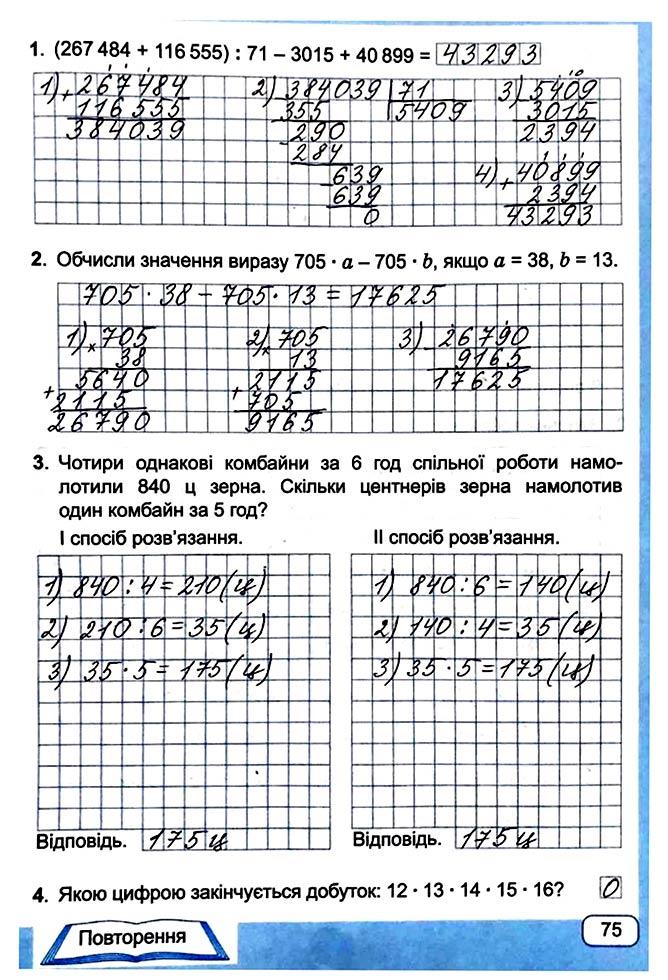 1. (267 484 + 116 555) : 71 – 3015 + 40 899 = 43293
1) + 267484
116555
384039
2) 384039 | 71
355 5409
- 290
284
- 639
639
0
3) 5409
3015
2394
4) + 40899
2394
43293
2. Обчисли значення виразу 705 · a – 705 · b, якщо a = 38, b = 13.
705 · 38 – 705 · 13 = 17625
1) × 705
38
+ 5640
2115
26790
2) × 705
13
+ 2115
705
9165
3) - 26790
9165
17625
3. Чотири однакові комбайни за 6 год спільної роботи намо-
лотили 840 ц зерна. Скільки центнерів зерна намолотив
один комбайн за 5 год?
І спосіб розв'язання.
1) 840 : 4 = 210 (ц)
2) 210 : 6 = 35 (ц)
3) 35 · 5 = 175 (ц)
Відповідь. 175 ц
ІІ спосіб розв'язання.
1) 840 : 6 = 140 (ц)
2) 140 : 4 = 35 (ц)
3) 35 · 5 = 175 (ц)
Відповідь. 175 ц
4. Якою цифрою закінчується добуток: 12 · 13 · 14 · 15 · 16? 0
Повторення
75